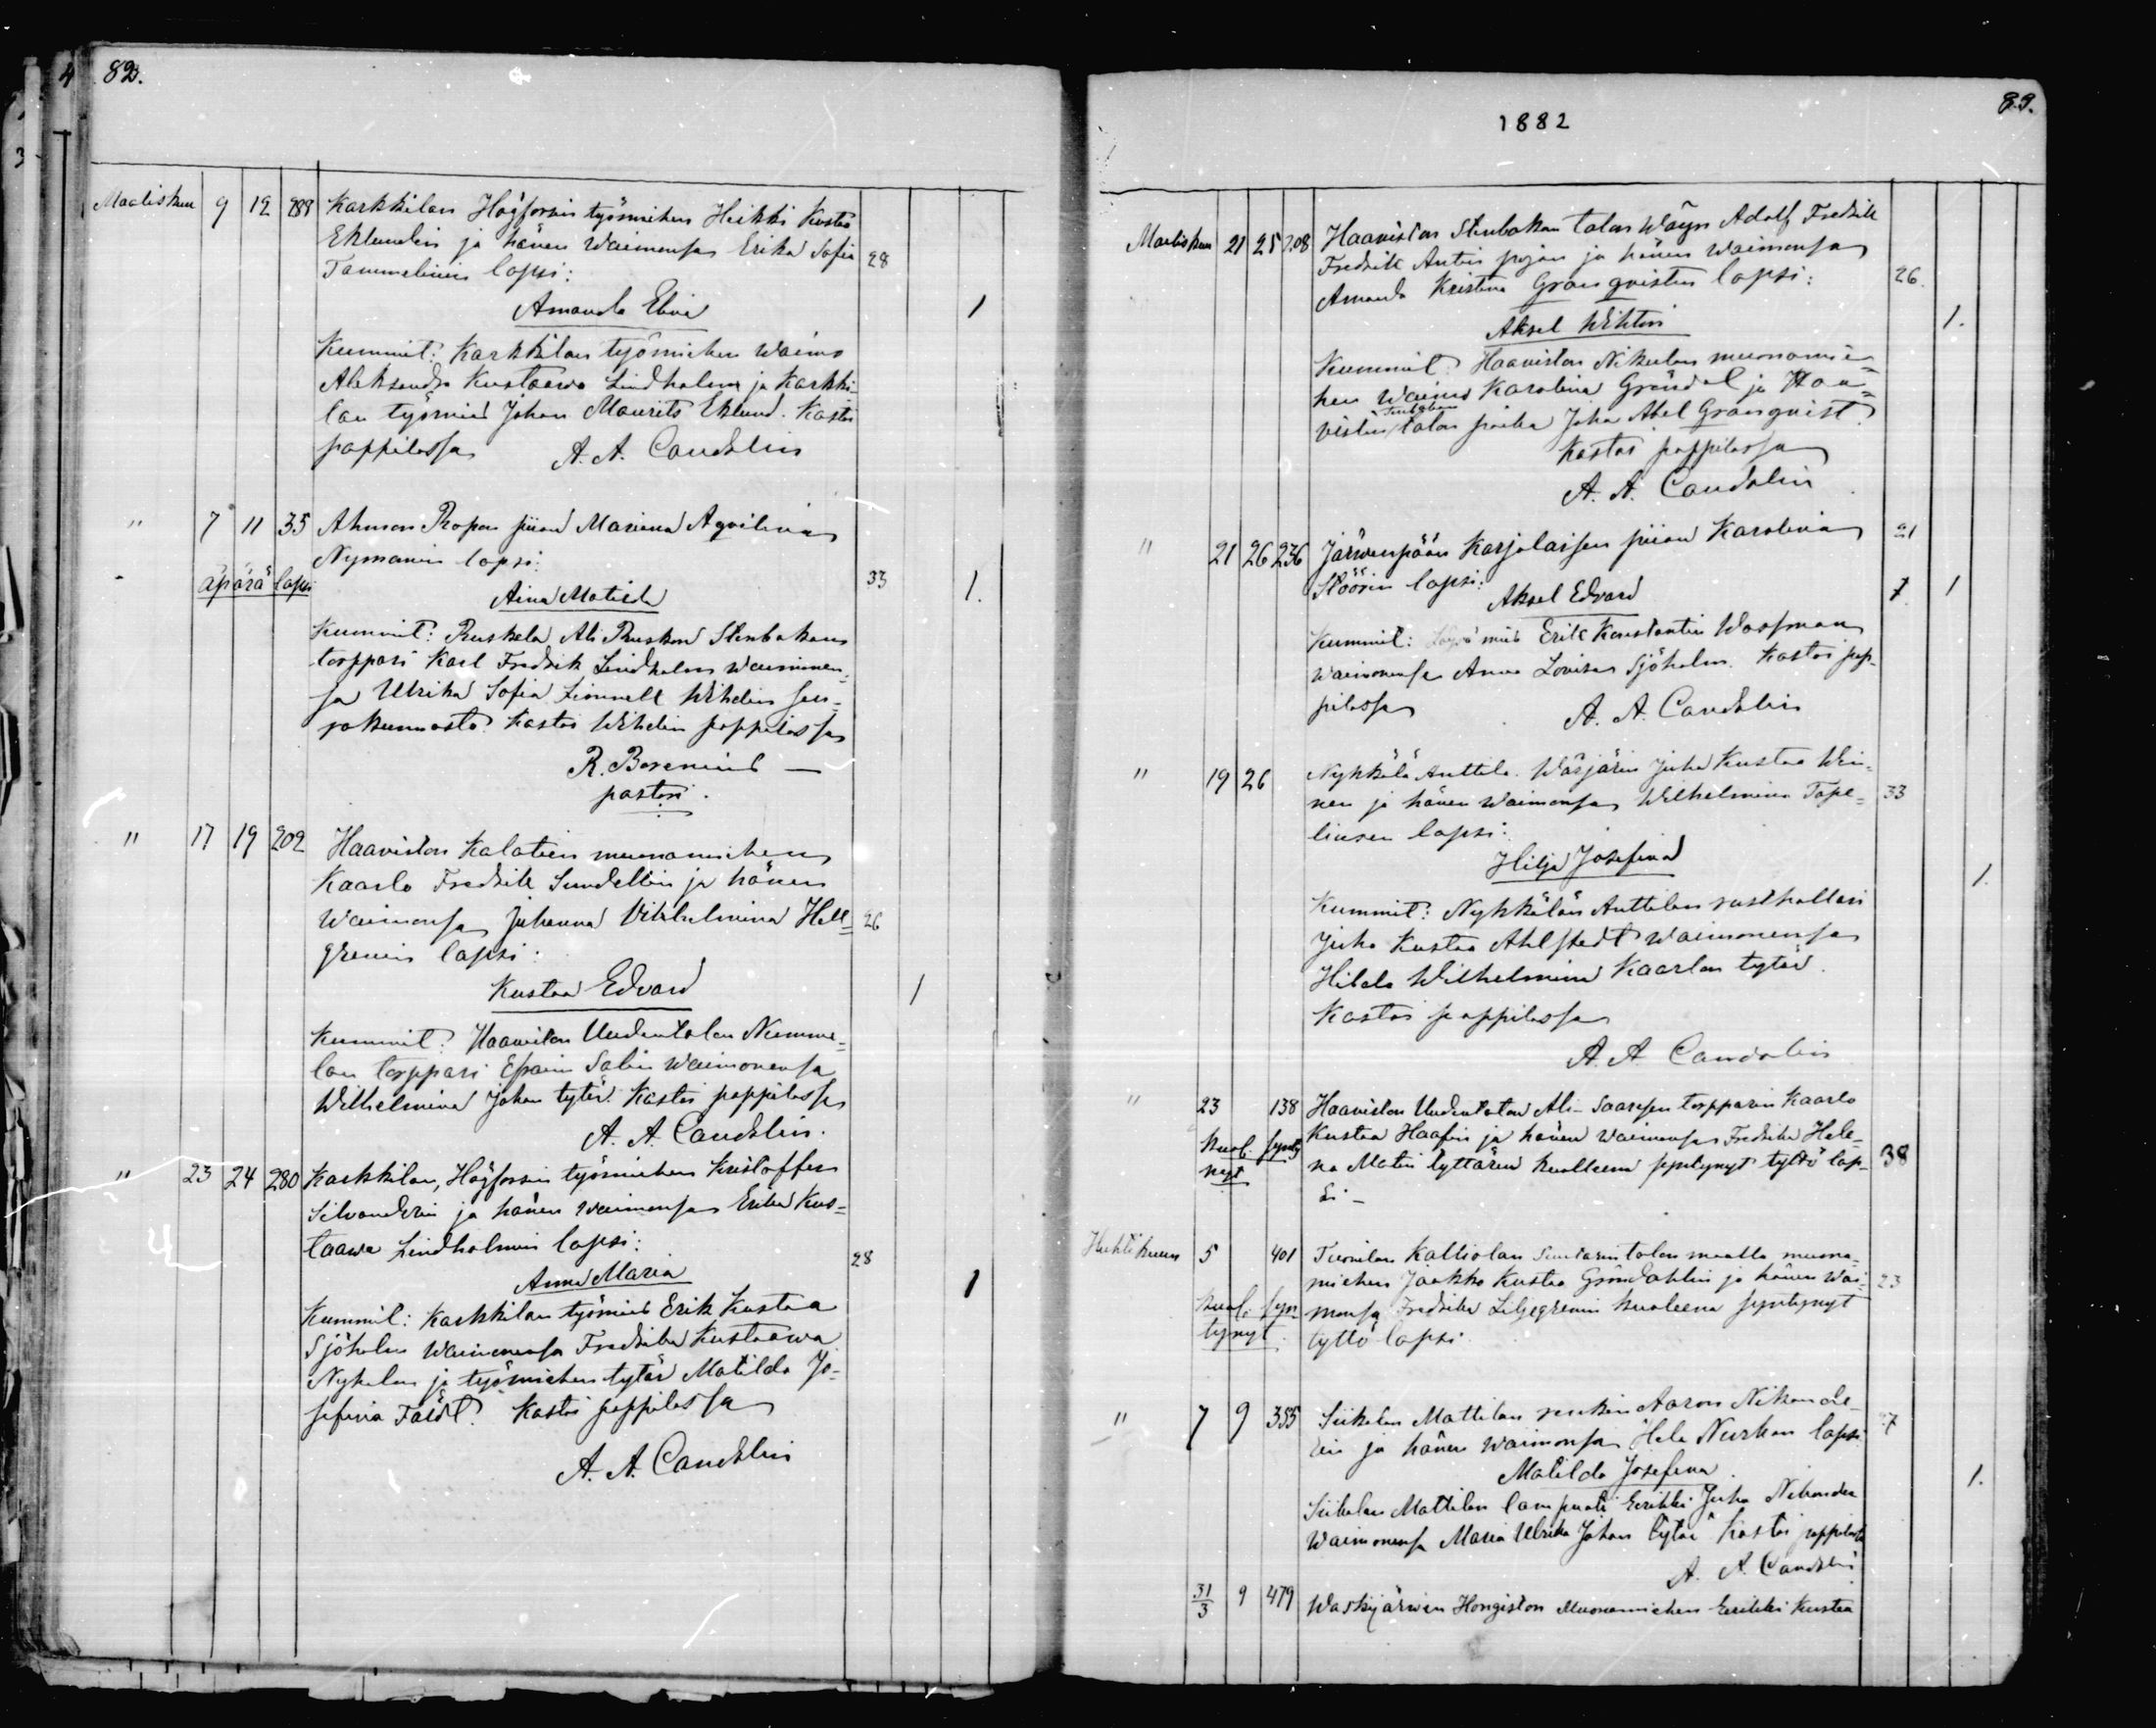 82.
Maaliskuu 9 12 288 Karkkilan Högforsin työmiehen Heikki Kustaa
Eklundin ja hänen waimonsa Erika Sofia 28
Tammelinin lapsi:
Amanda Elina 1
Kummit: Karkkilan työmiehen waimo
Aleksandra Kustaawa Lindholm ja Karkki-
lan työmies Johan Maurits Eklund. Kastoi
pappilassa A. A. Candolin
" 7 11 35 Ahmon Ropon piian Mariana Aqvilina
Nymanin lapsi:
äpärä lapsi 33 1.
Aina Matilda
Kummit: Ruskela Ali Ruskon Stenbakan
torppari Karl Fredrik Lindholm waimonen=
sa Ulrika Sofia Limnell Wihdin seu=
rakunnasta. Kastoi Wihdin pappilassa
R. Borenius —
pastori.
" 17 19 202 Haaviston Kalatien muonamiehen
Kaarlo Fredrik Sundellin ja hänen
waimonsa Johanna Vilhelmina Hell= 26
grenin lapsi:
Kustaa Edvard 1
Kummit: Haaviston Uudentalon Numme=
lan torppari Efraim Salin waimonensa
Wilhelmina Johan tytär. Kastoi pappilassa
A. A. Candolin.
" 23 24 280 Karkkilan, Högforsin työmiehen Kristoffer
Silvanderin ja hänen waimonsa Erika Kus=
taawa Lindholmin lapsi: 28
Anna Maria 1
Kummit: Karkkilan työmies Erik Kustaa
Sjöholm waimonensa Fredrika Kustaawa
Nyholm ja työmiehen tytär Matilda Jo-
sefina Faldt. Kastoi pappilassa
A. A. Candolin
1882
83.
Maaliskuu 21 25 208 Haaviston Stenbakan talon wäyn Adolf Fredrik
Fredrik Antin pojan ja hänen waimonsa
Amanda Kristina Granqvistin lapsi: 26.
Aksel Wihtori 1.
Kummit: Haaviston Nikulan muonamie=
hen waimo Karolina Gröndal ja Haa=
viston talon poika Joha Abel Granqvist.
Kastoi pappilassa
A. A. Candolin
" 21 26 236 Järwenpään Karjalaisen piian Karolina 21
Slöörin lapsi:
Aksel Edvard 1
Kummit: mies Erik Konstantin Wassman
waimonensa Anna Lovisa Sjöholm. Kastoi pap-
pilassa A. A. Candolin
" 19 26 Nyhkälä Anttila. Wärjärin Juha Kustaa Wei=
nen ja hänen waimonsa Wilhelmina Tape= 33
liusen lapsi:
Hilja Josefina 1.
Kummit: Nyhkälän Anttilan rusthollari
Juho Kustaa Ahlstedt waimonensa
Hilda Wilhelmina Kaarlon tytär.
Kastoi pappilassa
A. A. Candolin
" 23 138 Haaviston Uudentalon Ali-Saaresen torpparin Kaarlo
Kustaa Haafin ja hänen waimonsa Fredrika Hele- 38
kuol. synty
nyt
na Matin tyttären kuolleena syntynyt tyttö lap-
si -
Huhtikuun 5 401 Tuorilan Kalliolan talon maalla muona-
miehen Jaakko Kustaa Gröndahlin ja hänen wai- 23
kuol. syn-
tynyt.
monsa Fredrika Liljegrenin kuoleena syntynyt
tyttö lapsi.
" 7 9 355 Siikalan Mattilan renkin Aaron Nikande-
rin ja hänen waimonsa Hele Nurkan lapsi
Matilda Josefina 1.
Siikalan Mattilan lampuoti Eerikki Juha Nikander
waimonensa Maria Ulrika Johan tytär. Kastoi pappilassa
A. A. Candolin
31/3 9 479 Waskijärwen Hongiston Muonamiehen Eerikki Kustaa